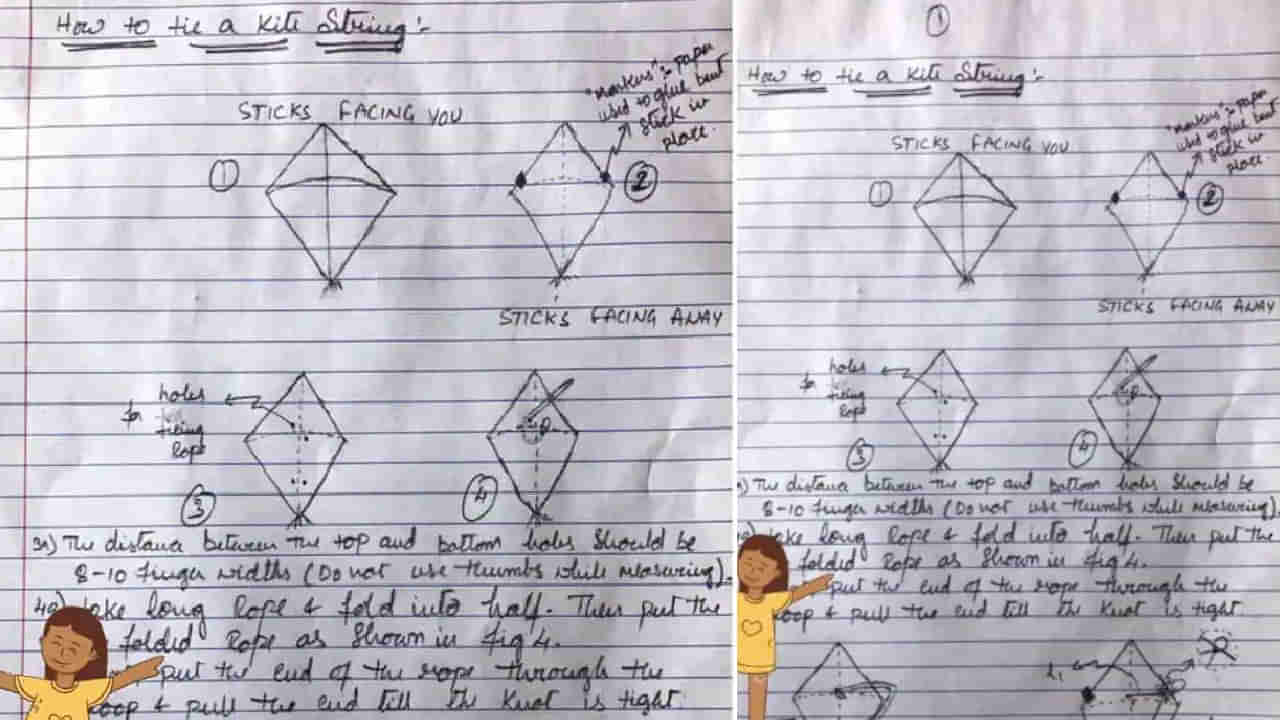 How to tie a kite String :-
STICKS FACING YOU
"markers" :- Paper
used to glue bent
stick in
place.
1
2
STICKS FACING AWAY
holes
for
tieing
Rope
3
4
3a) The distance between the top and bottom holes should be
8-10 finger widths (Do not use thumbs while measuring).
4a) take long Rope & fold into half. Then put the
folded Rope as shown in fig 4.
put the end of the rope through the
loop & pull the end till the knot is tight.
1
How to tie a kite String :-
STICKS FACING YOU
"markers" :- Paper
used to glue bent
stick in
place.
1
2
STICKS FACING AWAY
holes
for
tieing
Rope
3
4
) The distance between the top and bottom holes should be
8-10 finger widths (Do not use thumbs while measuring)
take long Rope & fold into half. Then put the
folded Rope as shown in fig 4.
put the end of the rope through the
loop & pull the end till the knot is tight